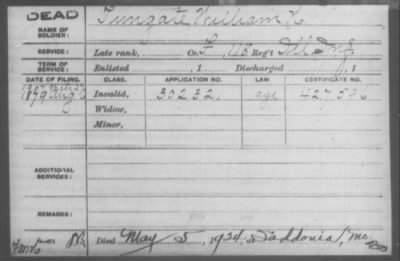 DEAD
NAME OF SOLDIER: Tungate William H
SERVICE: Late rank, Co. F, Reg't Ill Inf.
TERM OF SERVICE: Enlisted , 1 Discharged , 1
DATE OF FILING. CLASS. APPLICATION NO. LAW. CERTIFICATE NO.
1879 Aug Invalid, 302321 age 427,596
Widow,
Minor,
ADDITIONAL SERVICES:
REMARKS:
Died May 5, 1924, Mo.